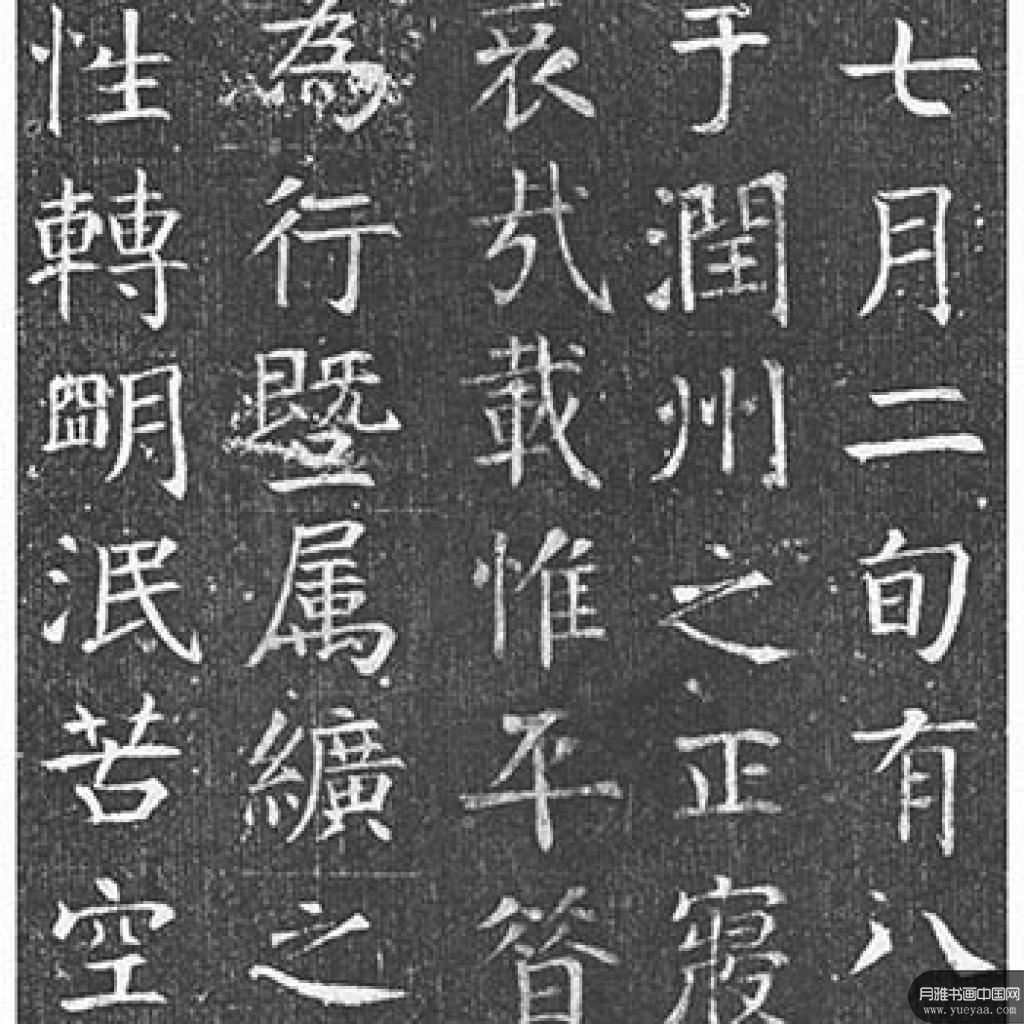 七月二旬有八
于潤州之正寢
哀哉載惟平昔
為行暨属纊之
性轉明泯苦空
月雅书画中国网
www.yueyaa.com